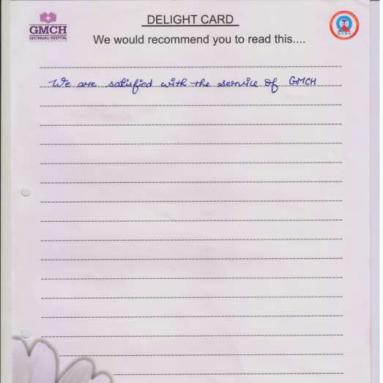 GMCH
DELIGHT CARD
We would recommend you to read this....
We are satisfied with the service of GMCH